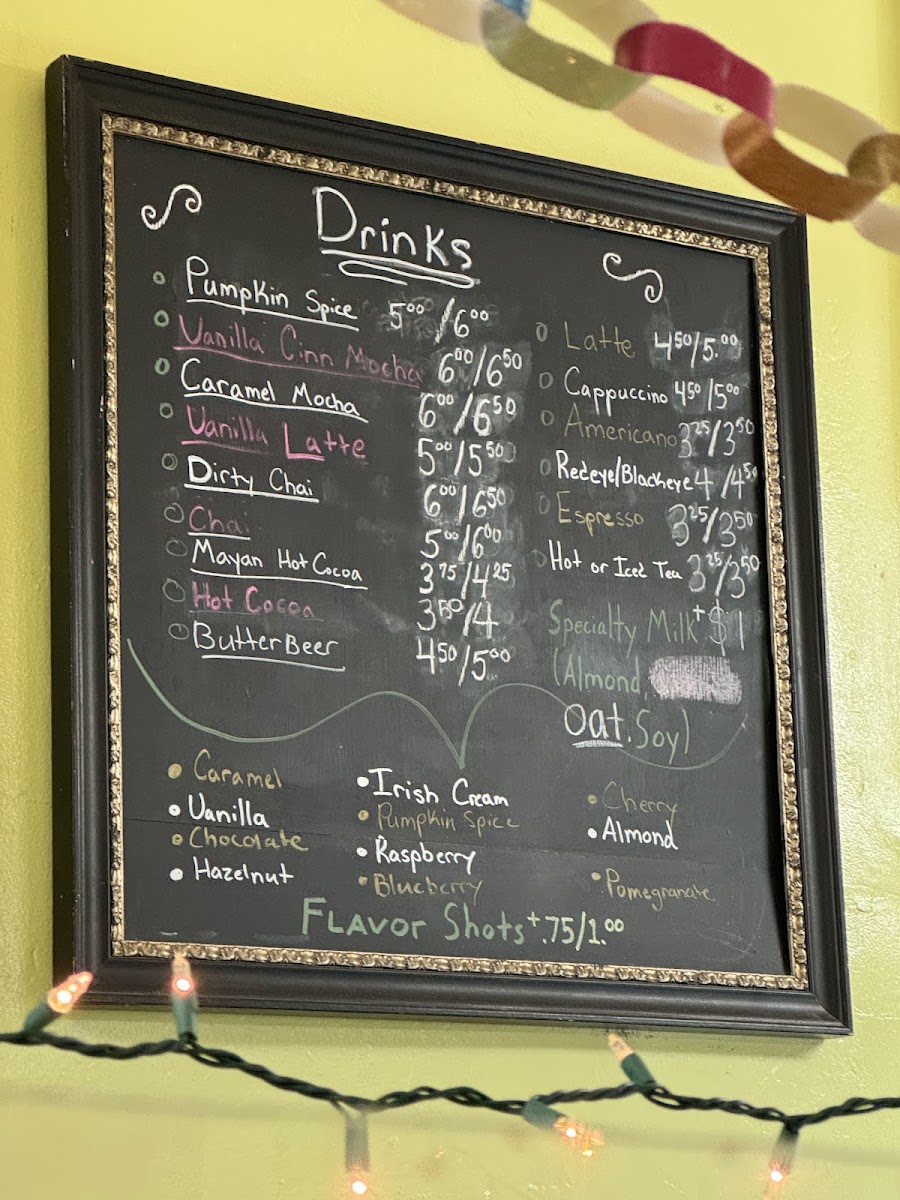 Drinks
Pumpkin Spice 5.00/6.00
Vanilla Cinn Mocha 6.00/6.50
Caramel Mocha 6.00/6.50
Vanilla Latte 5.00/5.50
Dirty Chai 6.00/6.50
Chai 5.00/6.00
Mayan Hot Cocoa 3.75/4.25
Hot Cocoa 3.50/4
ButterBeer 4.50/5.00
Latte 4.50/5.00
Cappuccino 4.50/5.00
Americano 3.25/3.50
Redeye/Blackeye 4/4.50
Espresso 3.25/3.50
Hot or Iced Tea 3.25/3.50
Specialty Milk +$1
(Almond,
oat, Soy)
Caramel
Vanilla
Chocolate
Hazelnut
Irish Cream
Pumpkin Spice
Raspberry
Blueberry
Cherry
Almond
Pomegranate
Flavor Shots +.75/1.00